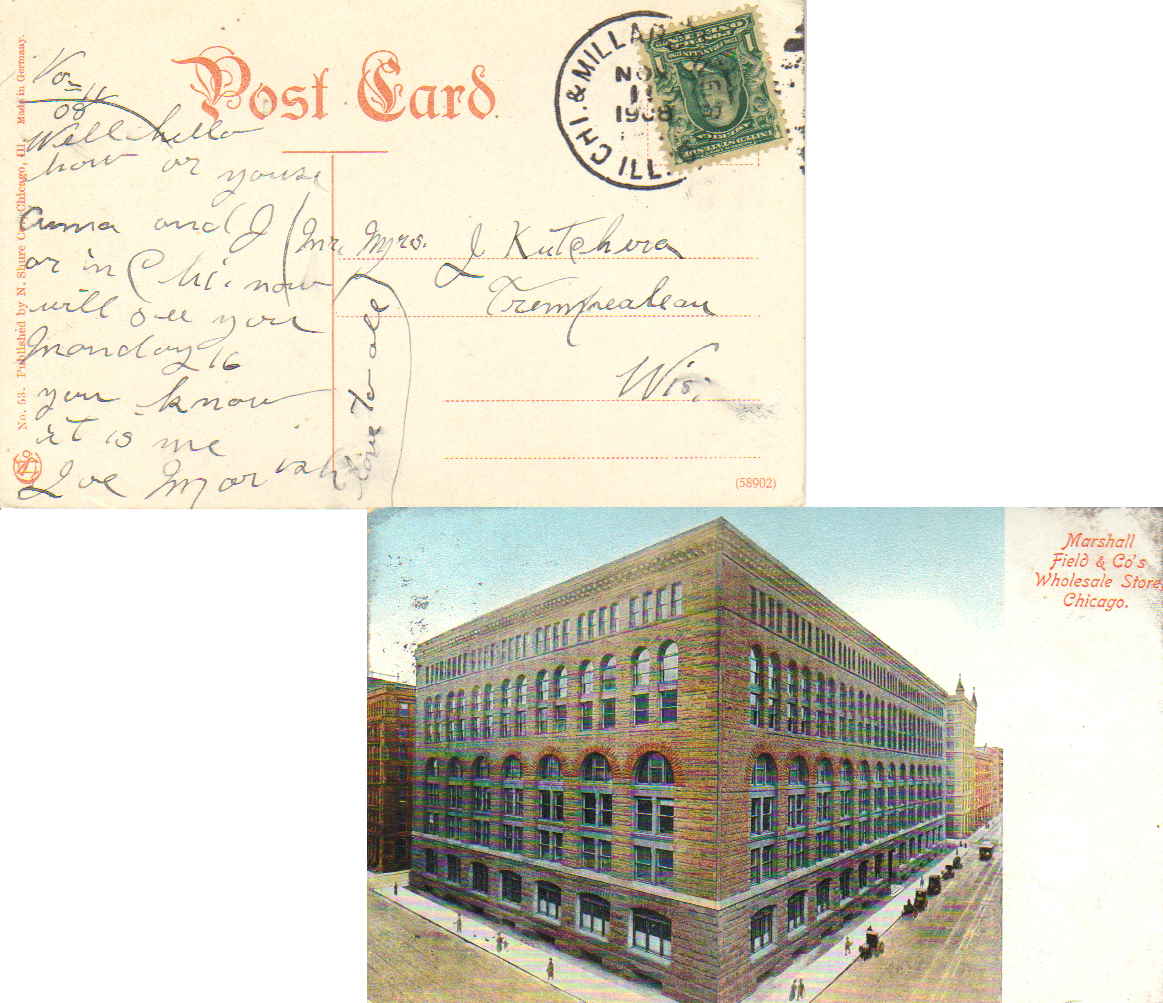 Post Card
No. 53. Published by N. Shure Co., Chicago, Ill. Made in Germany.
CHI. & MILLARD
NOV
11
1908
ILL.
UNITED STATES OF AMERICA
1
1
Nov 11
08
Well hello
how or youse
Anna and J
or in Chi. now
will see you
Monday 16
you know
it is me
Joe
Love to all
Mr. Mrs. J Kutchera
Trempealeau
Wis.
(58902)
Marshall
Field & Co's
Wholesale Store,
Chicago.